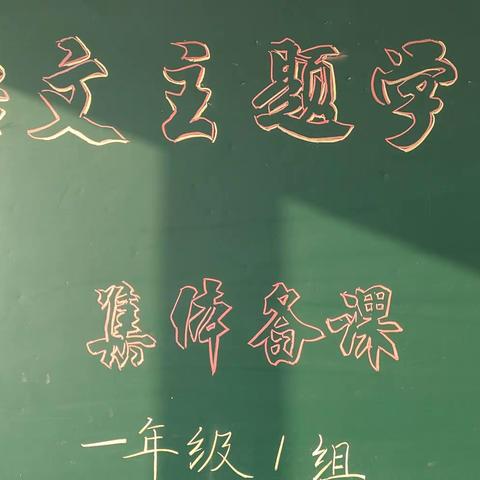 文主题学
集体备课
一年级1组